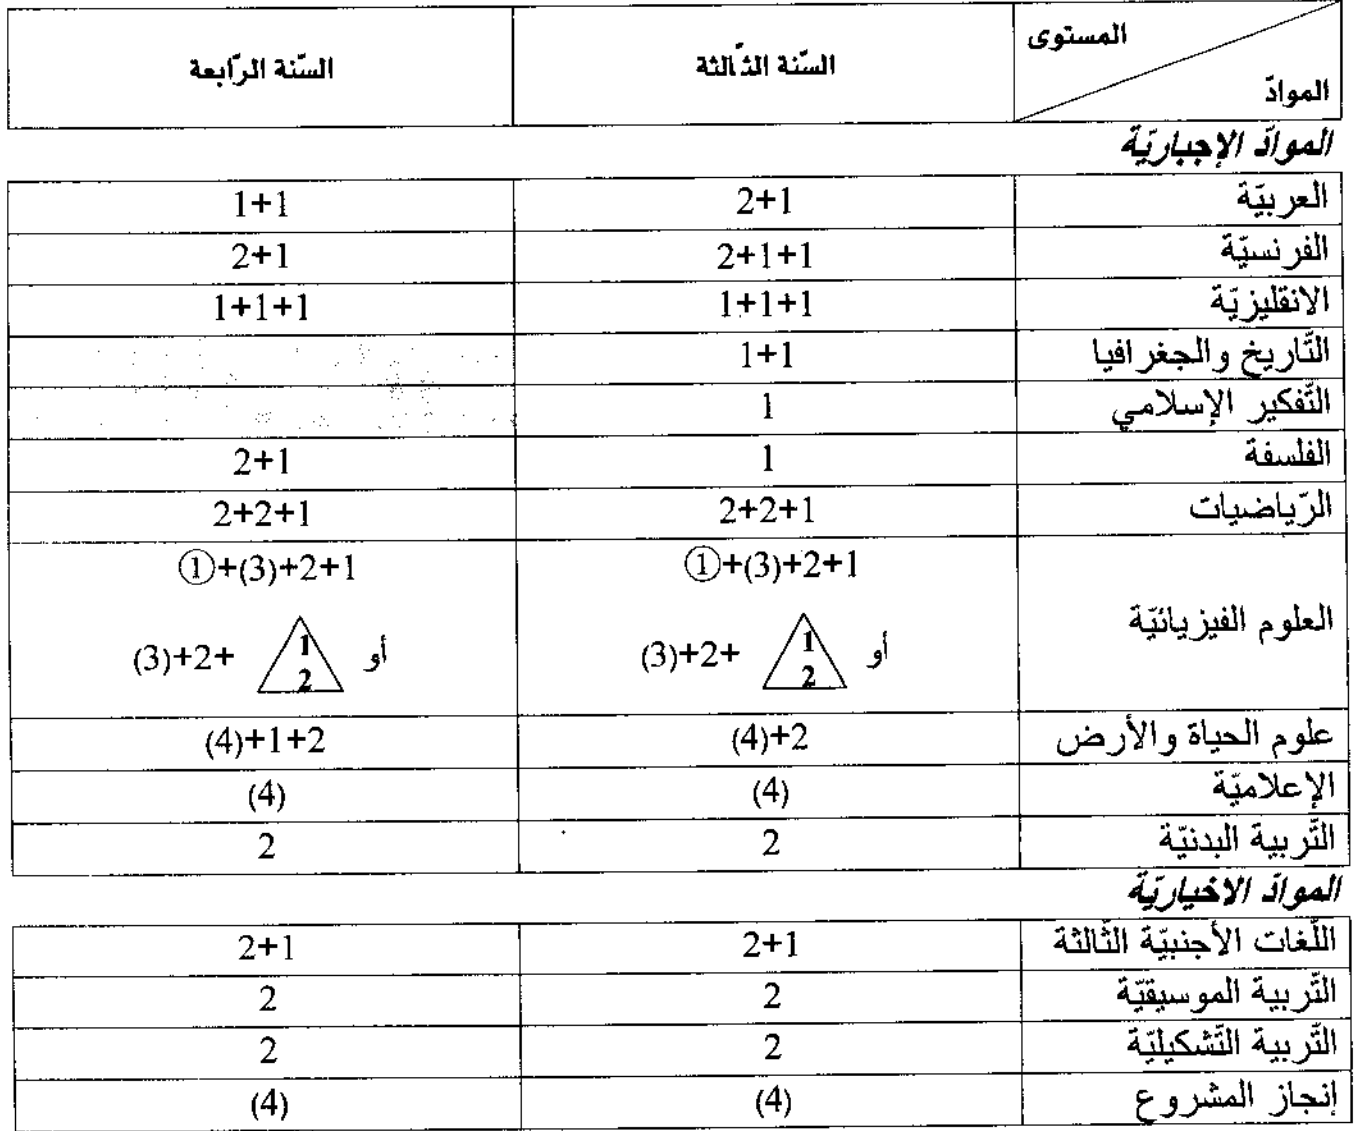 المستوى
الموادّ السّنة الثّالثة السّنة الرّابعة
الموادّ الإجباريّة
العربيّة 2+1 1+1
الفرنسيّة 2+1+1 2+1
الانقليزيّة 1+1+1 1+1+1
التّاريخ والجغرافيا 1+1
التّفكير الإسلامي 1
الفلسفة 1 2+1
الرّياضيات 2+2+1 2+2+1
①+(3)+2+1 ①+(3)+2+1
العلوم الفيزيائيّة
أو 1 +2+(3) أو 1 +2+(3)
2 2
علوم الحياة والأرض (4)+2 (4)+1+2
الإعلاميّة (4) (4)
التّربية البدنيّة 2 2
الموادّ الاخياريّة
اللّغات الأجنبيّة الثّالثة 2+1 2+1
التّربية الموسيقيّة 2 2
التّربية التّشكيليّة 2 2
إنجاز المشروع (4) (4)